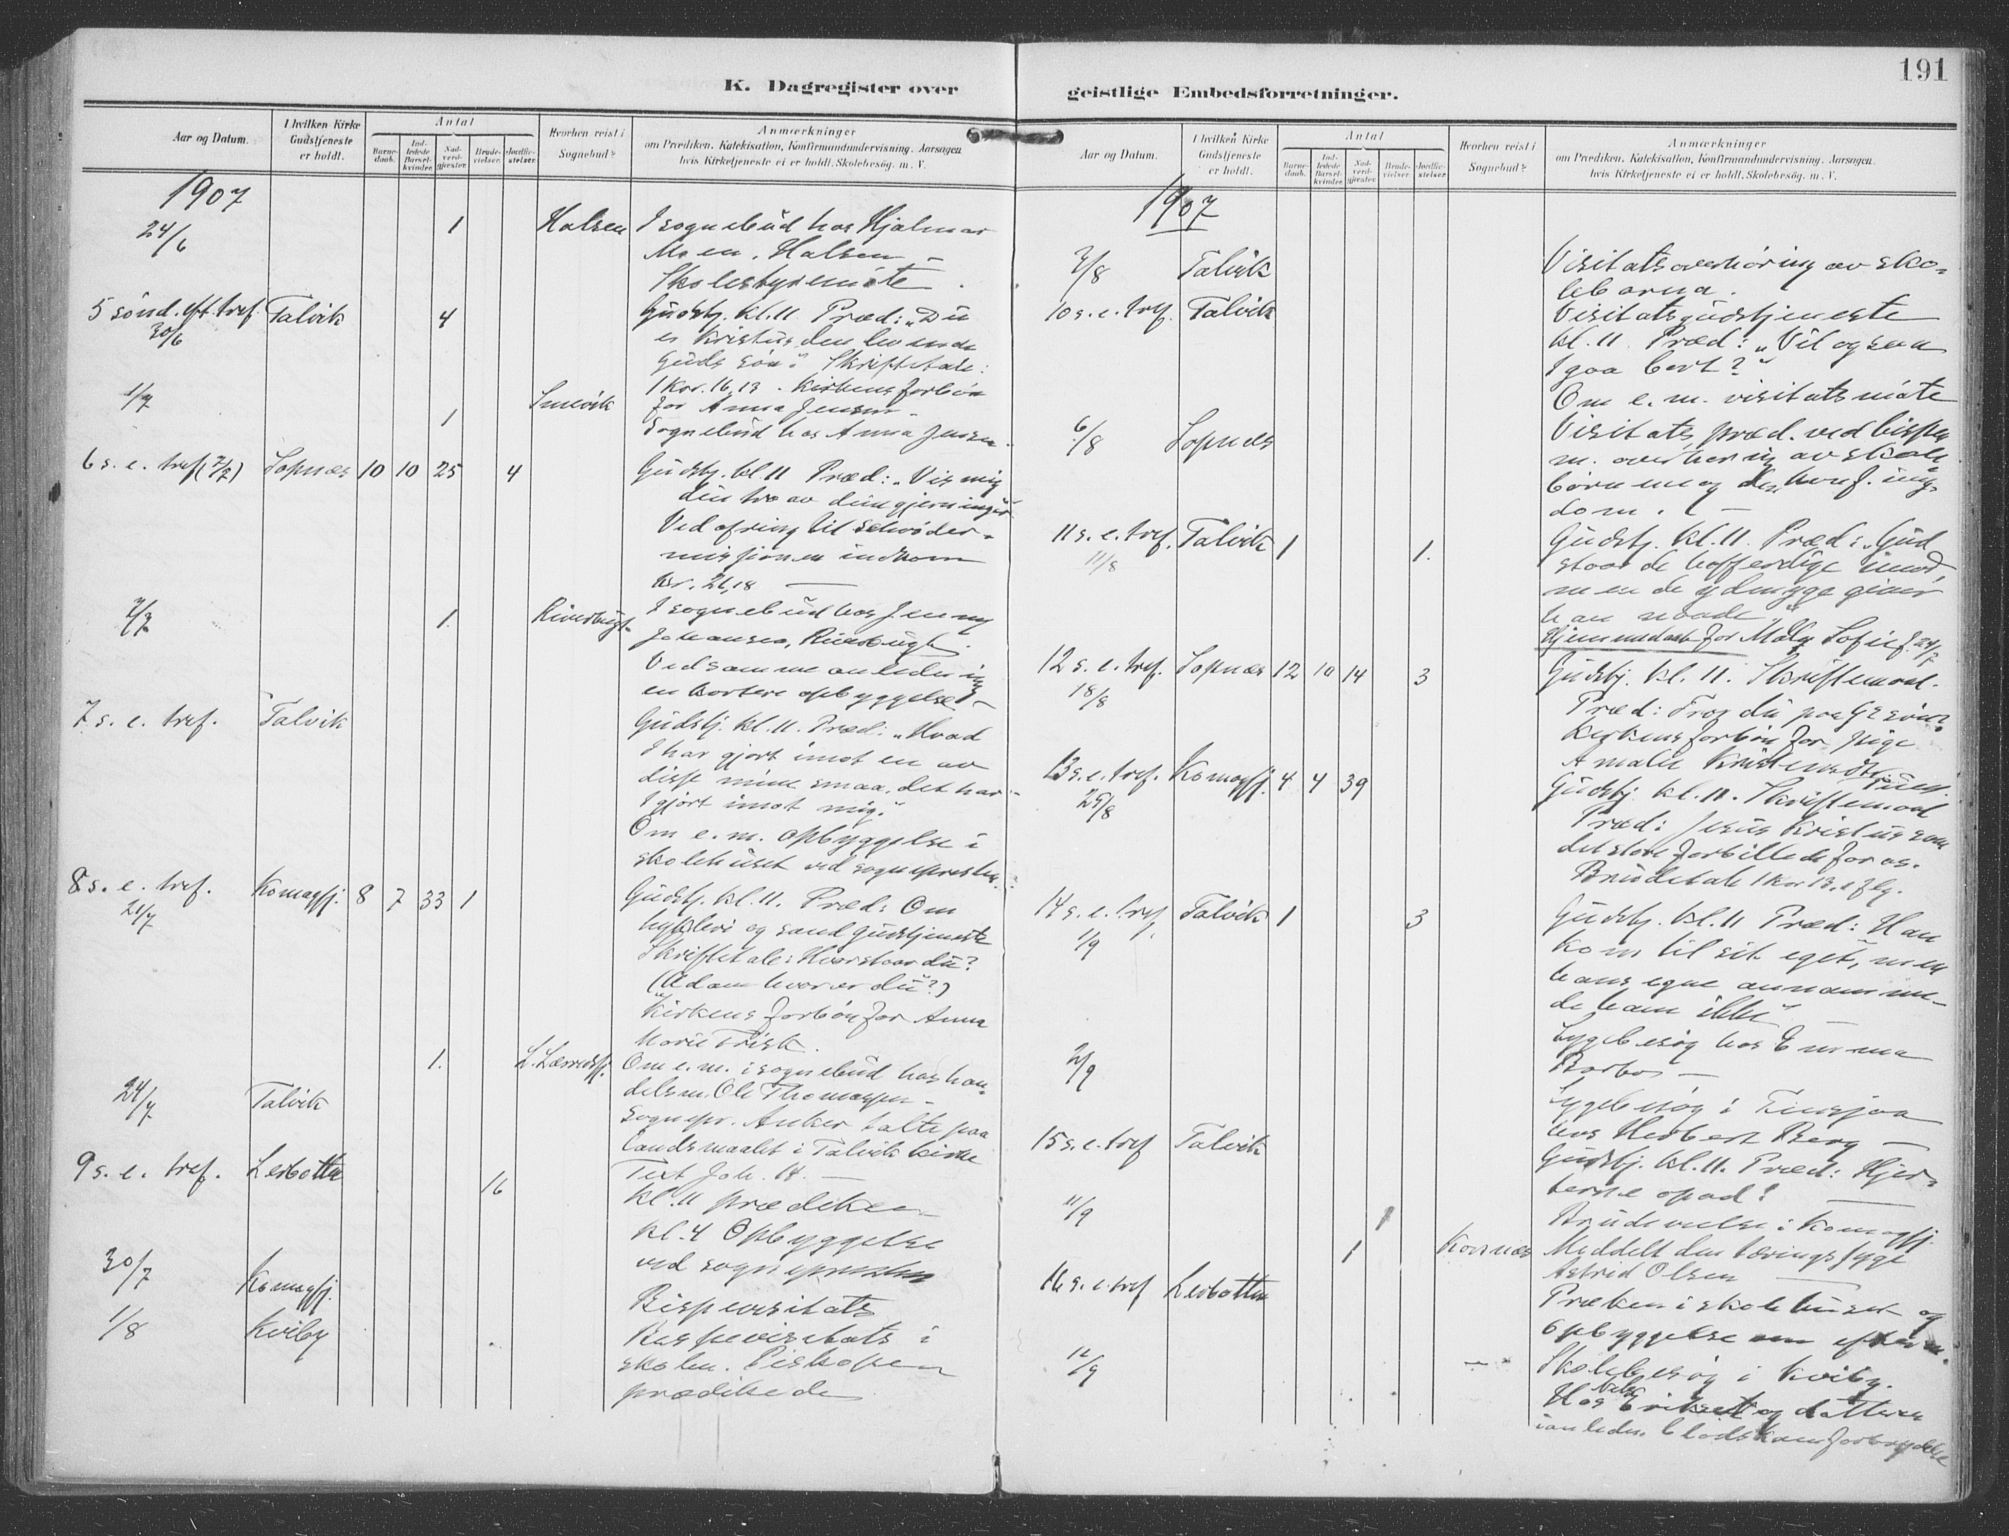 K. Dagregister over
Aar og Datum.
I hvilken Kirke Gudstjeneste er holdt.
Antal
Barnedaab.
Indledede Barselkvinder.
Nadverdgjæster.
Brudevielser.
Jordfæstelser.
Hvorhen reist i Sognebud?
Anmærkninger
om Prædiken, Katekisation, Konfirmandundervisning, Aarsagen
hvis Kirketjeneste ei er holdt, Skolebesög. m. V.
1907
24/6 1 Halsen I sognebud hos Hjalmar
Moen, Halsen –
Skolestyremöte.
5 sönd. eft. tref. Talvik 4 Gudstj. kl. 11 Præd: „Du
30/6 er Kristus den levende
Guds sön." Skriftetale:
1 Kor. 16,13. Kirkens forbön
1/7 Smevik for Anna Jensen.
1 Sognebud hos Anna Jensen.
6 s. e. tref. (7/7) Sopnæs 10 10 25 4 Gudstj. kl 11 Præd: „Vis mig
din tro av dine gjerninger
Ved ofring til
missionen indkom
kr. 21,18 —
1. I sognebud hos Jenny
Johansen,
Ved samme anledning
en kortere opbyggelse –
7 s. e. tref. Talvik Gudstj. kl. 11. Præd: „Hvad
I har gjort imot en av
disse mine smaa, det har
I gjort imot mig."
Om e. m. opbyggelse i
skolehuset ved sognepresten.
8 s. e. tref. Komagfj. 8 7 33 1 Gudstj. kl. 11. Præd: Om
21/7 hykleri og sand gudstjeneste
Skriftetale: Hvor staar du?
(Adam hvor er du?)
Kirkens forbön for Anna
Marie Frisk.
1. L. Lærredsfj. Om e. m. i sognebud hos han-
24/7 Talvik delsm. Ole Thomassen –
Sognepr. Anker talte paa
landsmaalet i Talvik kirke
9 s. e. tref. Leirbotten Text Joh. 14. —
16 kl. 11 prædiken
kl. 4 Opbyggelse
ved
30/7 Komagfj. Bispevisitats
1/8 Kviby Bispevisitats i
skolen. Biskopen
prædikede
geistlige Embedsforretninger.
191
Aar og Datum.
I hvilken Kirke Gudstjeneste er holdt.
Antal
Barnedaab.
Indledede Barselkvinder.
Nadverdgjæster.
Brudevielser.
Jordfæstelser.
Hvorhen reist i Sognebud?
Anmærkninger
om Prædiken, Katekisation, Konfirmandundervisning, Aarsagen
hvis Kirketjeneste ei er holdt, Skolebesög. m. V.
1907
3/8 Talvik Visitatsoverhöring av sko-
lebarna.
10 s. e. tref. Talvik Visitatsgudstjeneste
kl. 11 Præd: „Vil ogsaa
I gaa bort?"
Om e. m. visitatsmöte
6/8 Sopnæs Visitatspræd. ved bispen
m. overhöring av skole
börnene og den konf. ung-
dom. –
11 s. e. tref. Talvik 1 1. Gudstj. kl. 11. Præd: „Gud
11/8 staar de hoffærdige imod,
men de ydmyge giver
han naade"
Hjemmedaab for Sofie f.
12 s. e. tref. Sopnæs 12 10 14 3 Gudstj. kl. 11. Skriftemaal.
18/8 Præd: Tror du paa Gs sön?
Kirkens forbön for pige
Amalie
13 s. e. tref. Komagfj. 4 4 39 Gudstj. kl. 11. Skriftemaal
25/8 Præd: Jesus Kristus som
det store forbillede for os.
Brudetale 1 Kor 13,1 flg.
14 s. e. tref. Talvik 1 3 Gudstj. kl. 11 Præd: Han
1/9 kom til sit eget, men
hans egne annamme-
de ham ikke"
Sygebesög hos Emma
2/9 Barbos –
Sygebesög i
hos Herbert Berg –
15 s. e. tref Talvik Gudstj. kl. 11. Præd: Hjer-
terne opad! —
11/9 1 Brudevielse i Komagfj.
1 Korsnes Meddelt den tæringssyge
Astrid Olsen —
16 s. e. tref Leirbotten Præken i skolehuset og
opbyggelse om efterm.
12/9 – " – Skolebesög i Kviby.
Hos og datteren
i anledn.